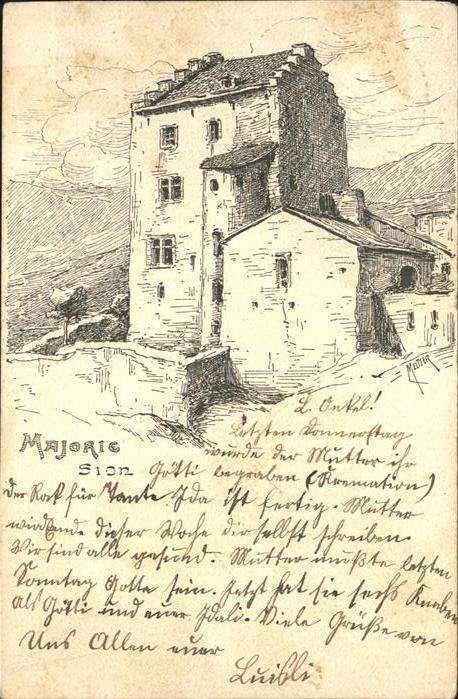 Majorie
Sion
L. Onkel!
Letzten Donnerstag
wurde der Mutter ihr
Götti begraben (Kremation)
Der Rock für Tante Ida ist fertig. Mutter
wird Ende dieser Woche dir selbst schreiben.
Wir sind alle gesund. Mutter mußte letzten
Sonntag Gotte sein. Jetzt hat sie sechs Knaben
als Götti und euer Idali. Viele Grüße von
Uns Allen euer
Luisli